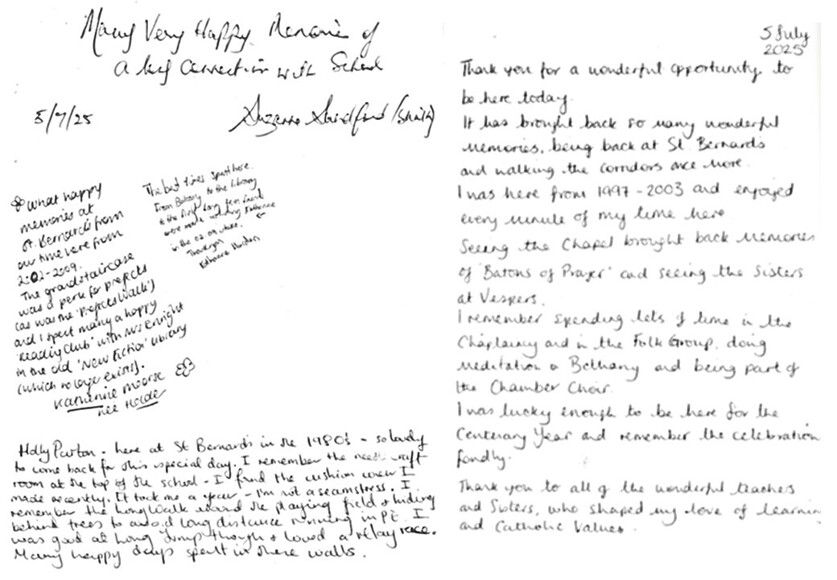 Many Very Happy Memories of
a long Connection with School
5/7/25
Suzanne (Smith)
What happy
memories at
St. Bernards from
our time here from
2002-2009.
The grand staircase
was a perk for prefects
(as was the 'Prefects Walk')
and I spent many a happy
'Reading Club' with Mrs Enright
in the old 'New Fiction' library
(which no longer exists).
Katherine Moorse
née Holder
The best times spent here.
From Botany, to the library
& the first long term friends
were made
in the
Thankyou
Katherine
Holly Purton - here at St Bernards in the 1980s - so lovely
to come back for this special day. I remember the needlecraft
room at the top of the school - I find the cushion cover I
made recently. It took me a year - I'm not a seamstress. I
remember the long walk around the playing field & hiding
behind trees to avoid long distance running in PE. I
was good at long jump though & loved a relay race.
Many happy days spent in these walls.
5 July
2025
Thank you for a wonderful opportunity to
be here today.
It has brought back so many wonderful
memories, being back at St. Bernards
and walking the corridors once more.
I was here from 1997-2003 and enjoyed
every minute of my time here
Seeing the Chapel brought back memories
of 'Batons of Prayer' and seeing the Sisters
at Vespers.
I remember spending lots of time in the
Chaplaincy and in the Folk Group, doing
meditation in Bethany and being part of
the Chamber Choir.
I was lucky enough to be here for the
Centenary Year and remember the celebration
fondly.
Thank you to all of the wonderful teachers
and Sisters, who shaped my love of learning
and Catholic Values.